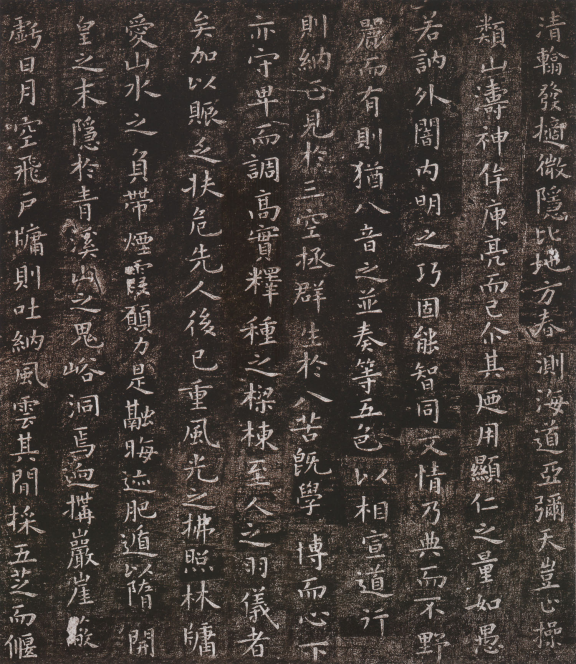 清發擿微隱比地方春測海道亞彌天豈止操
類山濤神侔庾亮而已尒其廼用顯仁之量如愚
若訥外闇内明之巧固能智同文情乃典而不野
麗而有則猶八音之並奏等五色以相宣道行
則納正見於三空拯群生於八苦既學博而心下
亦守卑而調高實釋種之樑棟至人之羽儀者
矣加以賑乏扶危先人後已重風光之拂照林牖
愛山水之負帶煙霞願力是融晦迹肥遁以隋開
皇之末隱於青溪山之鬼峪洞焉迥構巖崖蔽
虧日月空飛戸牖則吐納風雲其間採五芝而偃